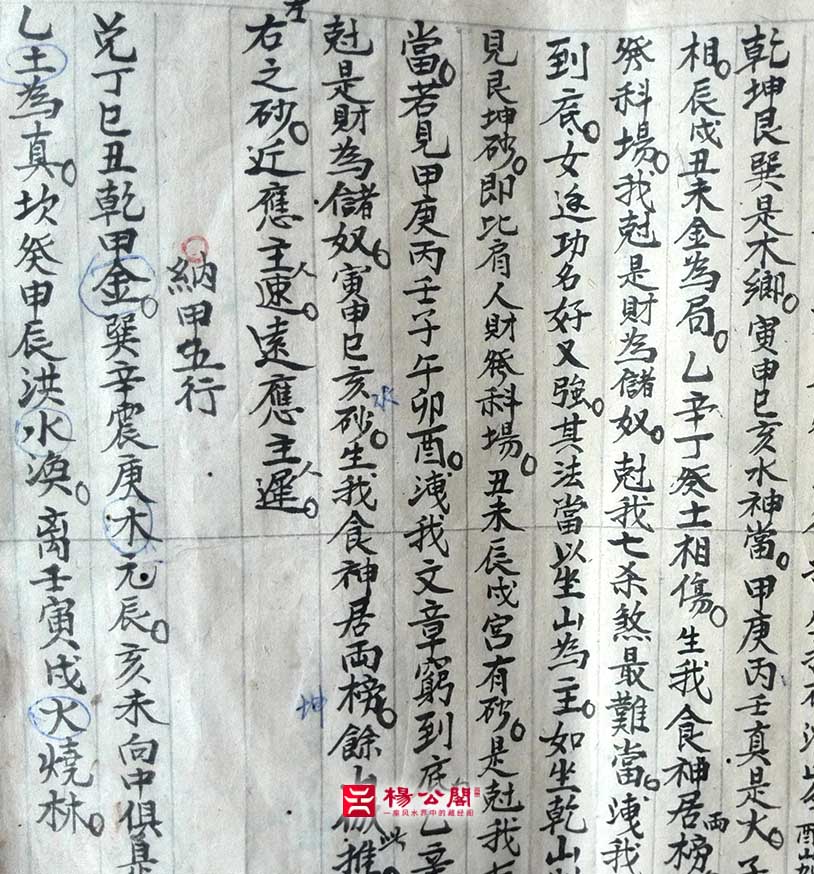 乾坤艮巽是木鄉。寅申巳亥水神當。甲庚丙壬真是火。子
相。辰戌丑未金為局。乙辛丁癸土相傷。生我食神居兩榜
發科場。我尅是財為儲奴。尅我七杀煞最難當。洩我
到底。女逆功名好又強。其法當以坐山為主。如坐乾山
見艮坤砂。即比肩人財發科場。丑未辰戌宮有砂。是尅我
當。若見甲庚丙壬子午卯酉。洩我文章窮到底。乙辛
尅是財為儲奴。寅申巳亥水砂。生我食神居兩榜。餘山倣此推
左右之砂。近應主人速。遠應主人遲。
納甲五行
兌丁巳丑乾甲金。巽辛震庚木元辰。亥未向中俱是
坤乙土為真。坎癸申辰洪水渙。离壬寅戌火燒林。
楊公閣
一座风水界中的藏经阁